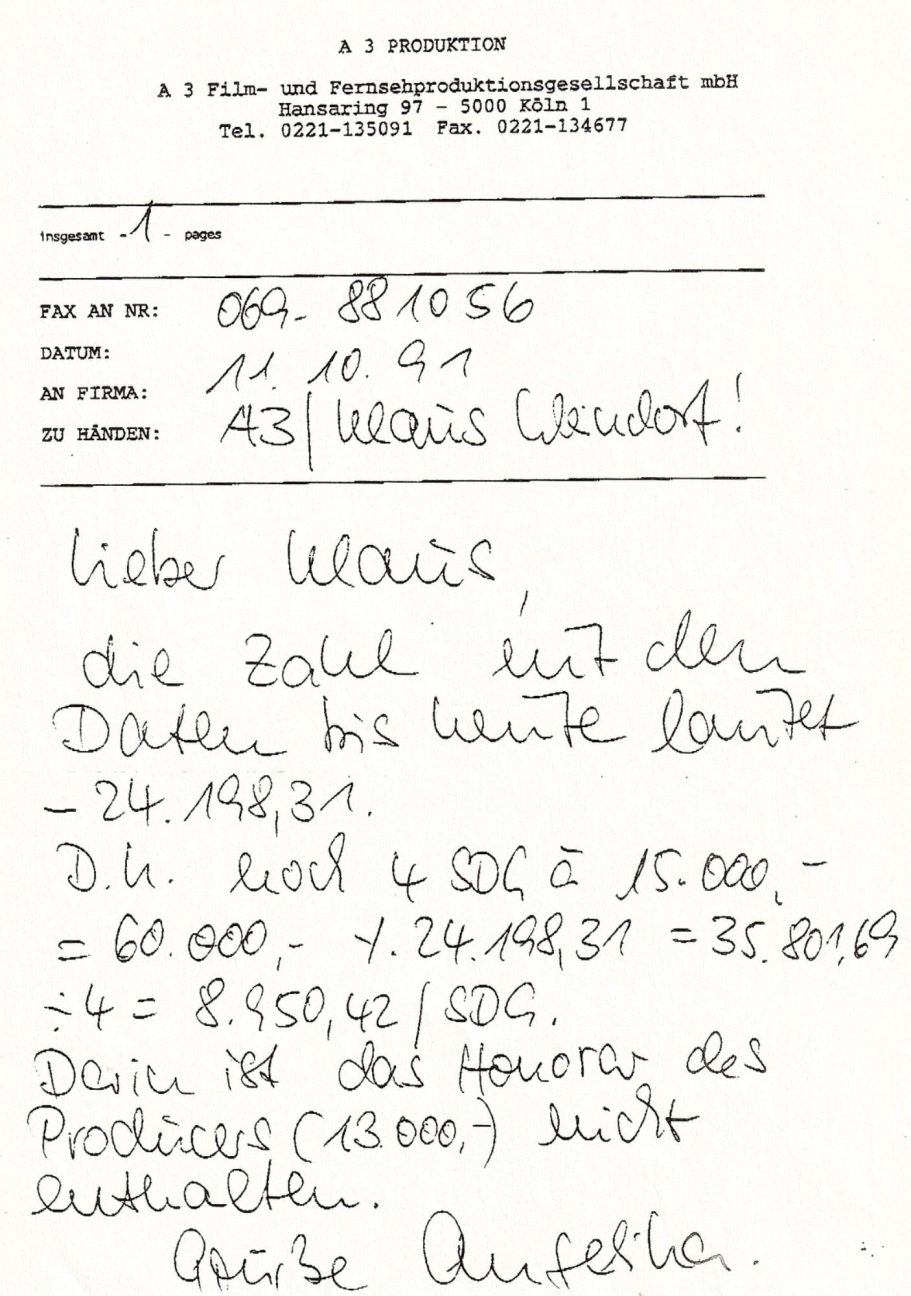 A 3 PRODUKTION
A 3 Film- und Fernsehproduktionsgesellschaft mbH
Hansaring 97 - 5000 Köln 1
Tel. 0221-135091 Fax. 0221-134677
insgesamt -1- pages
FAX AN NR: 069-881056
DATUM: 11.10.91
AN FIRMA:
ZU HÄNDEN: A3/Klaus !
Lieber Klaus,
die Zahl mit den
Daten bis heute lautet
- 24.198,31.
D.h. noch 4 SDG à 15.000,-
= 60.000,- ⁒ 24.198,31 = 35.801,69
÷ 4 = 8.950,42/SDG.
Darin ist das Honorar des
Producers (13.000,-) nicht
enthalten.
Grüße Angelika.